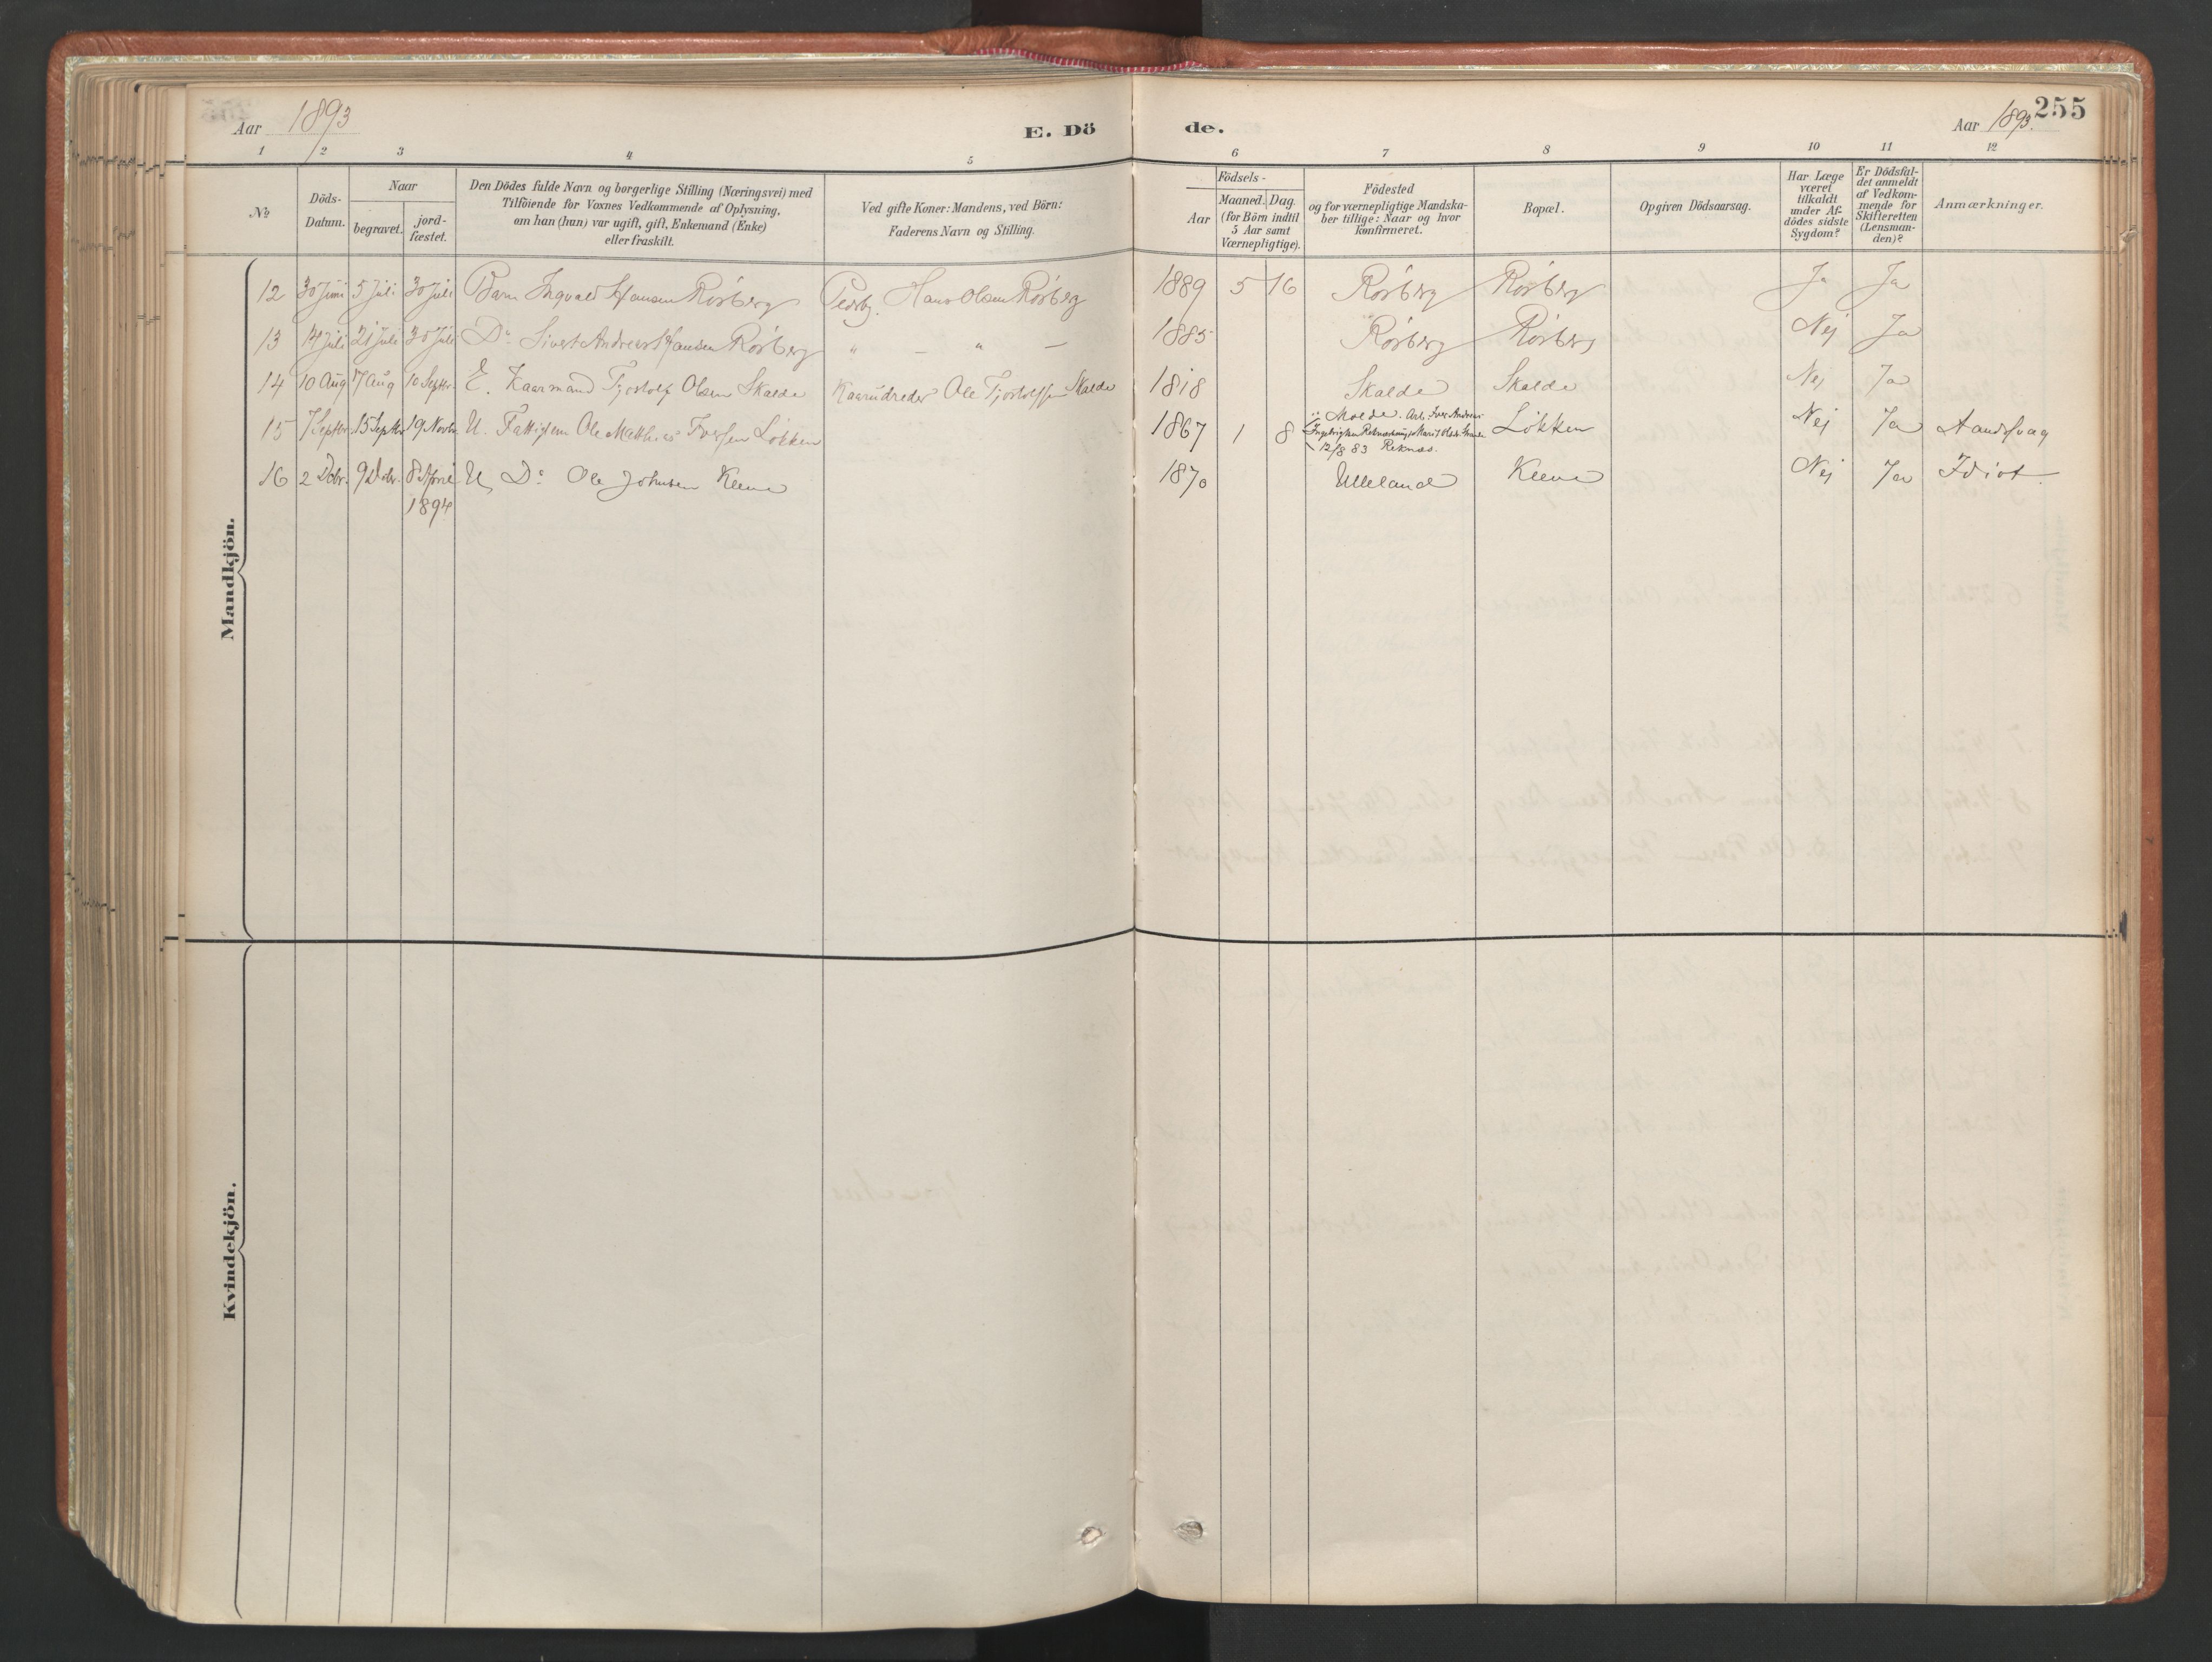 Aar 1893
E. Dö
de.
Aar 1893.
255
1 2 3 4 5 6 7 8 9 10 11 12
No
Döds-
Datum.
Naar
begravet.
jord-
fæstet.
Den Dödes fulde Navn og borgerlige Stilling (Næringsvei) med
Tilföiende for Voxnes Vedkommende af Oplysning,
om han (hun) var ugift, gift, Enkemand (Enke)
eller fraskilt.
Ved gifte Koner: Mandens, ved Börn:
Faderens Navn og Stilling.
Födsels-
Aar
Maaned. Dag.
(for Börn indtil
5 Aar samt
Værnepligtige).
Födested
og for værnepligtige Mandska-
ber tillige: Naar og hvor
konfirmeret.
Bopæl.
Opgiven Dödsaarsag.
Har Læge
været
tilkaldt
under Af-
dödes sidste
Sygdom?
Er Dödsfal-
det anmeldt
af Vedkom-
mende for
Skifteretten
(Lensman-
den)?
Anmærkninger.
Mandkjön.
12 30 Juni 5 Juli 30 Juli Barn Ingvald Hansen Rösberg Hans Olsen Rösberg 1889 5 16 Rösberg Rösberg Ja Ja
13 14 Juli 21 Juli 30 Juli Do Sivert Andreas Hansen Rösberg " — " — 1885 Rösberg Rösberg Nej Ja
14 10 Aug 17 Aug 10 Septbr. E. Kaarmand Tjostolf Olsen Skalde Ole Tjostolfsen Skalde 1818 Skalde Skalde Nej Ja
15 7 Septbr. 15 Septbr 19 Novbr. U. Fattiglem Ole Matthias Iversen Lökken 1867 1 8 Molde. Arb. Iver Andreas
12/8 83 Reknæs. Lökken Nej Ja Aandssvag
16 2 Decbr. 9 Decbr. 8 April
1894 U Do Ole Johnsen Kleve 1870 Ulleland Kleve Nej Ja Idiot.
Kvindekjön.